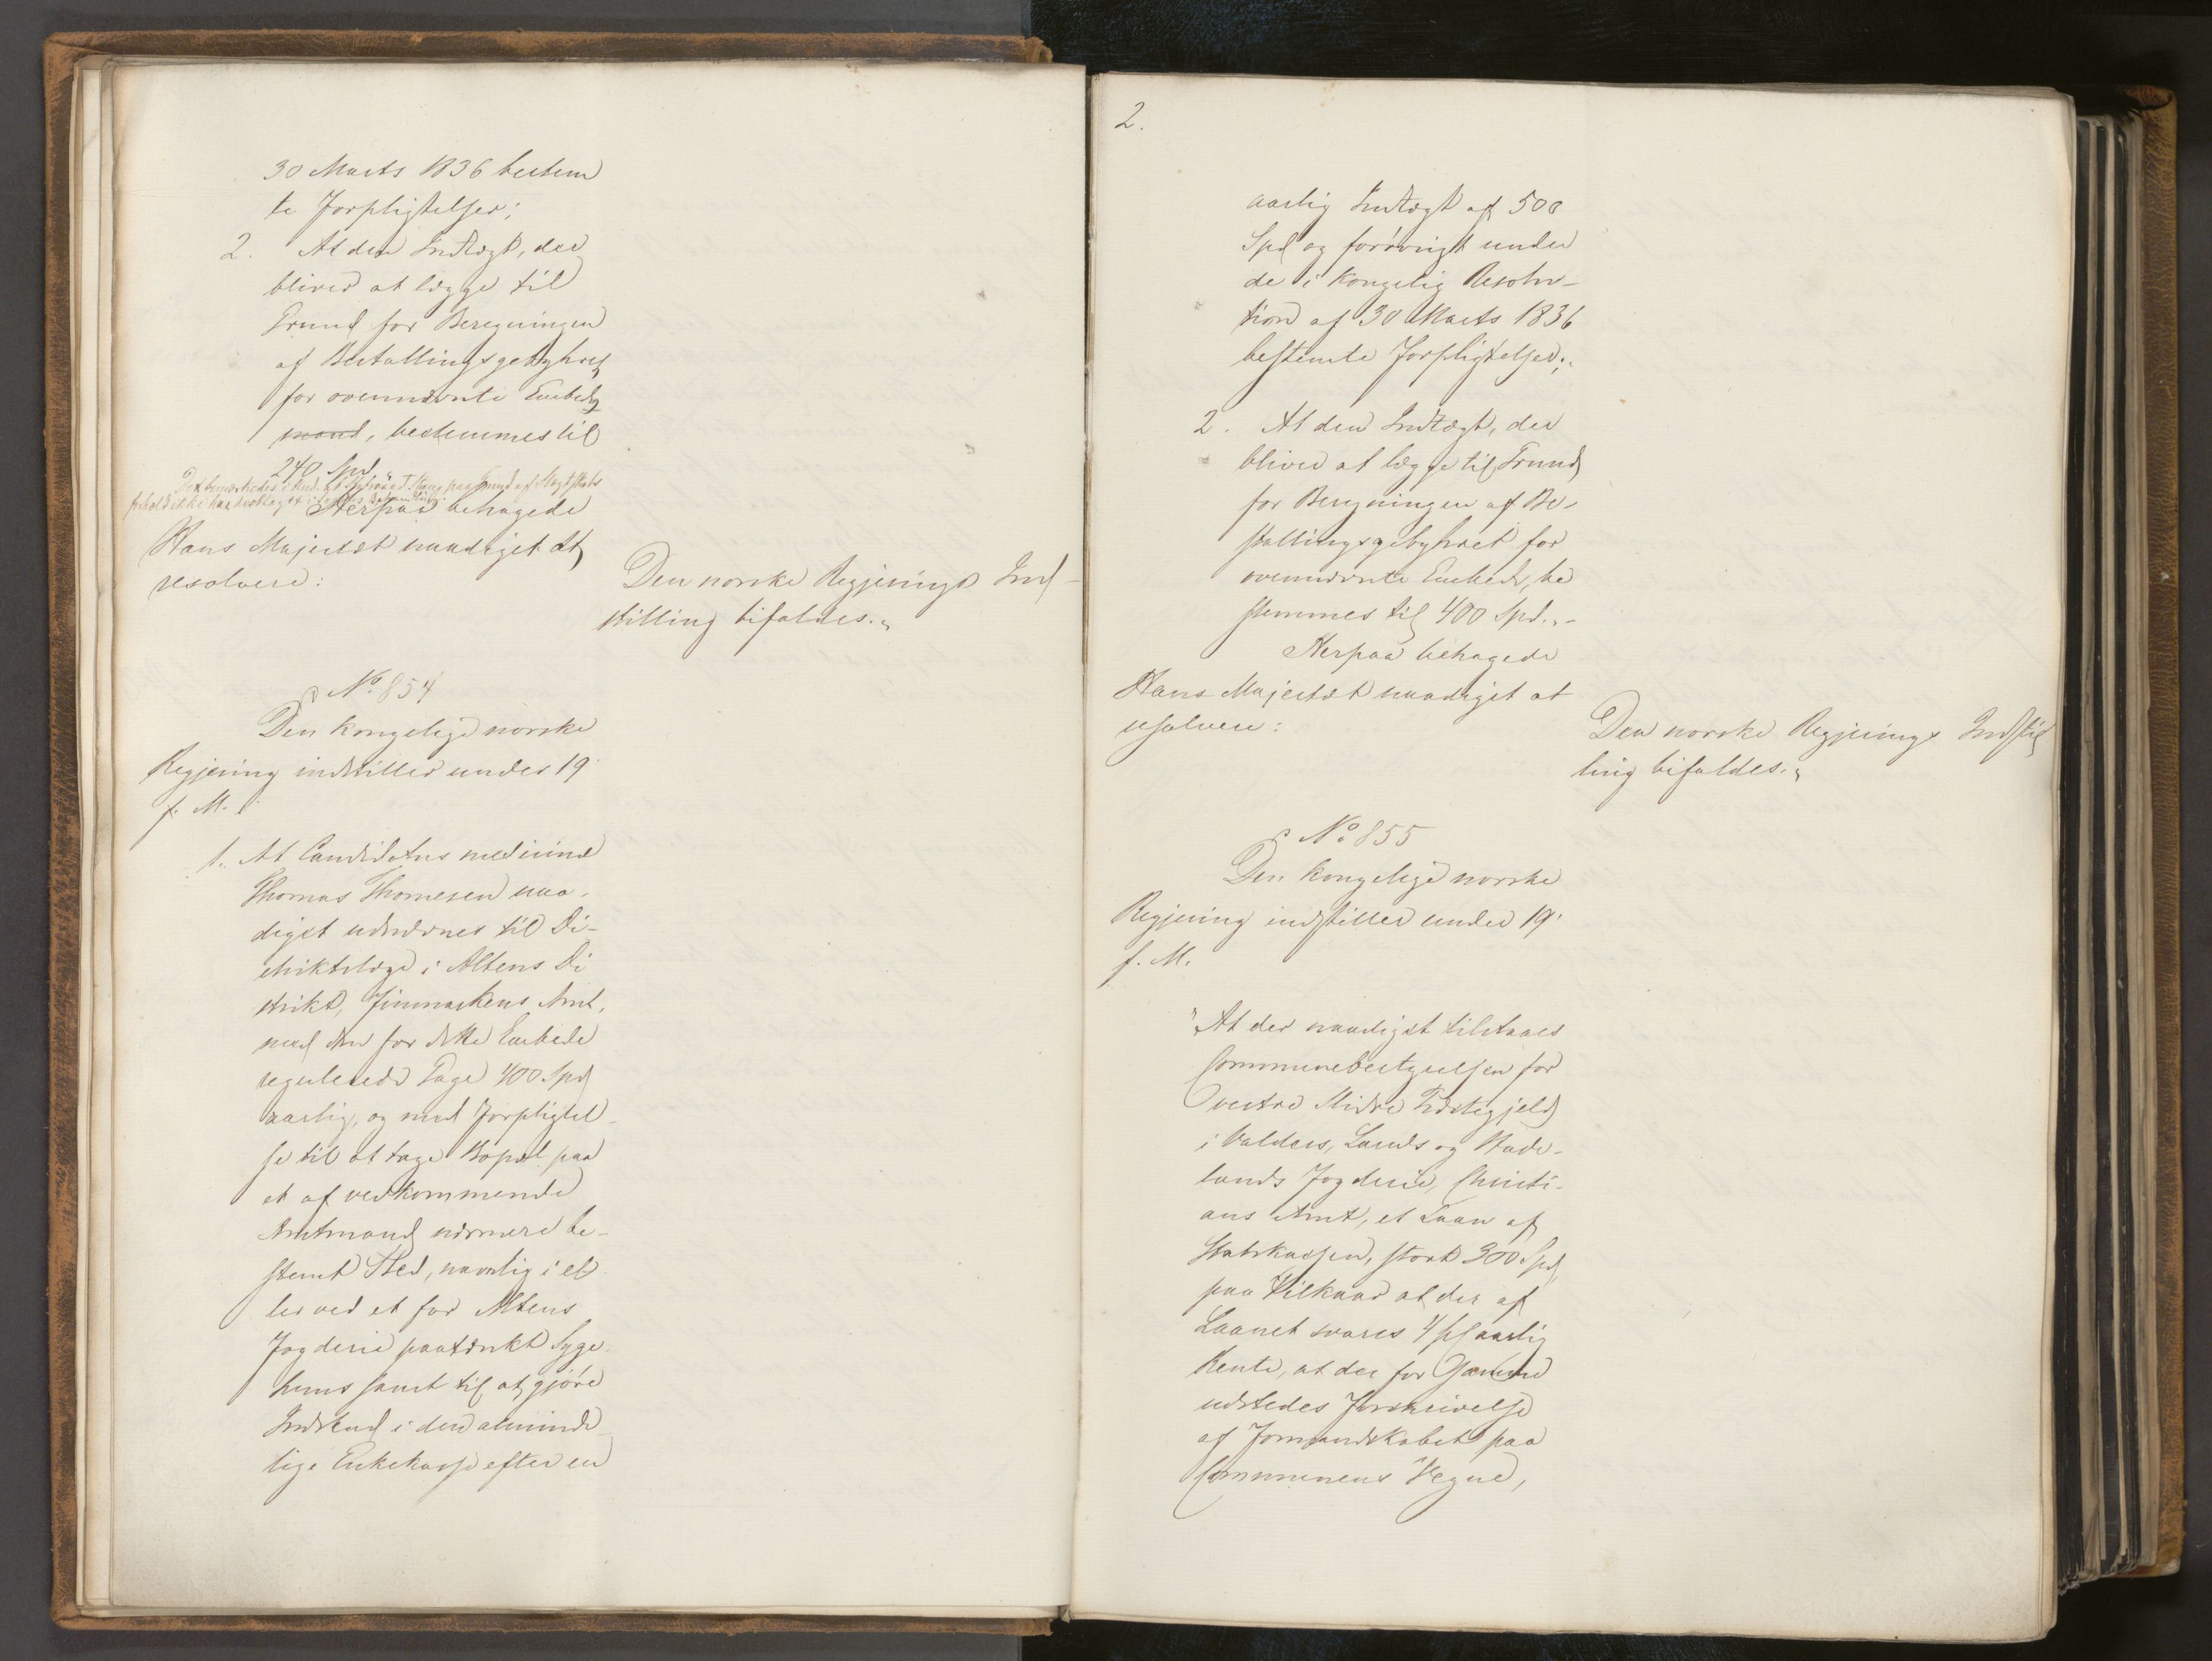 30 Marts 1836 bestem
te Forpligtelser;
2. At den Indtægt, der
bliver at lægge til
Grund for Beregningen
af Bestallingsgebyhret
for ovennævnte Embeds
mand, bestemmes til
240 Spd.
Det bemærkedes at paa Grund af Slægtskabs
forhold ikke har deeltaget i Sagens Behandling.
Herpaa behagede
Hans Majestæt naadigst at
resolvere:
Den norske Regjerings Ind-
stilling bifaldes.„
No. 854
Den kongelige norske
Regjering indstiller under 19
f. M.
1. At Candidatus medicinæ
Thomas Thomesen naa-
digst udnævnes til Di-
striktslæge i Altens Di
strikt, Finmarkens Amt,
med den for dette Embede
regulerede Gage 400 Spd
aarlig, og med Forpligtel-
se til at tage Bopæl paa
et af vedkommende
Amtmand nærmere be-
stemt Sted, navnlig i el
ler ved et for Altens
Fogderie paatænkt Syge-
huus samt til at gjøre
Indskud i den alminde-
lige Enkekasse efter en
2.
aarlig Indtægt af 500
Spd og forøvrigt under
de i kongelig Resolu-
tion af 30 Marts 1836
bestemte Forpligtelser;„
2. At den Indtægt, der
bliver at lægge til Grund
for Beregningen af Be-
stallingsgebyhret for
ovennævnte Embede, be
stemmes til 400 Spd.„-
Herpaa behagede
Hans Majestæt naadigst at
resolvere:
Den norske Regjerings Indstil
ling bifaldes.„
No. 855
Den kongelige norske
Regjering indstiller under 19
f. M.
"At der naadigst tilstaaes
Communebestyrelsen for
vestre Slidre Præstegjeld
i Valders, Lands og Hade-
lands Fogderie, Christi-
ans Amt, et Laan af
Statskassen, stort 300 Spd,
paa Vilkaar at der af
Laanet svares 4 pC aarlig
Rente, at der for Samme
udstedes Forskrivelse
af Formandskabet paa
Communens Vegne,